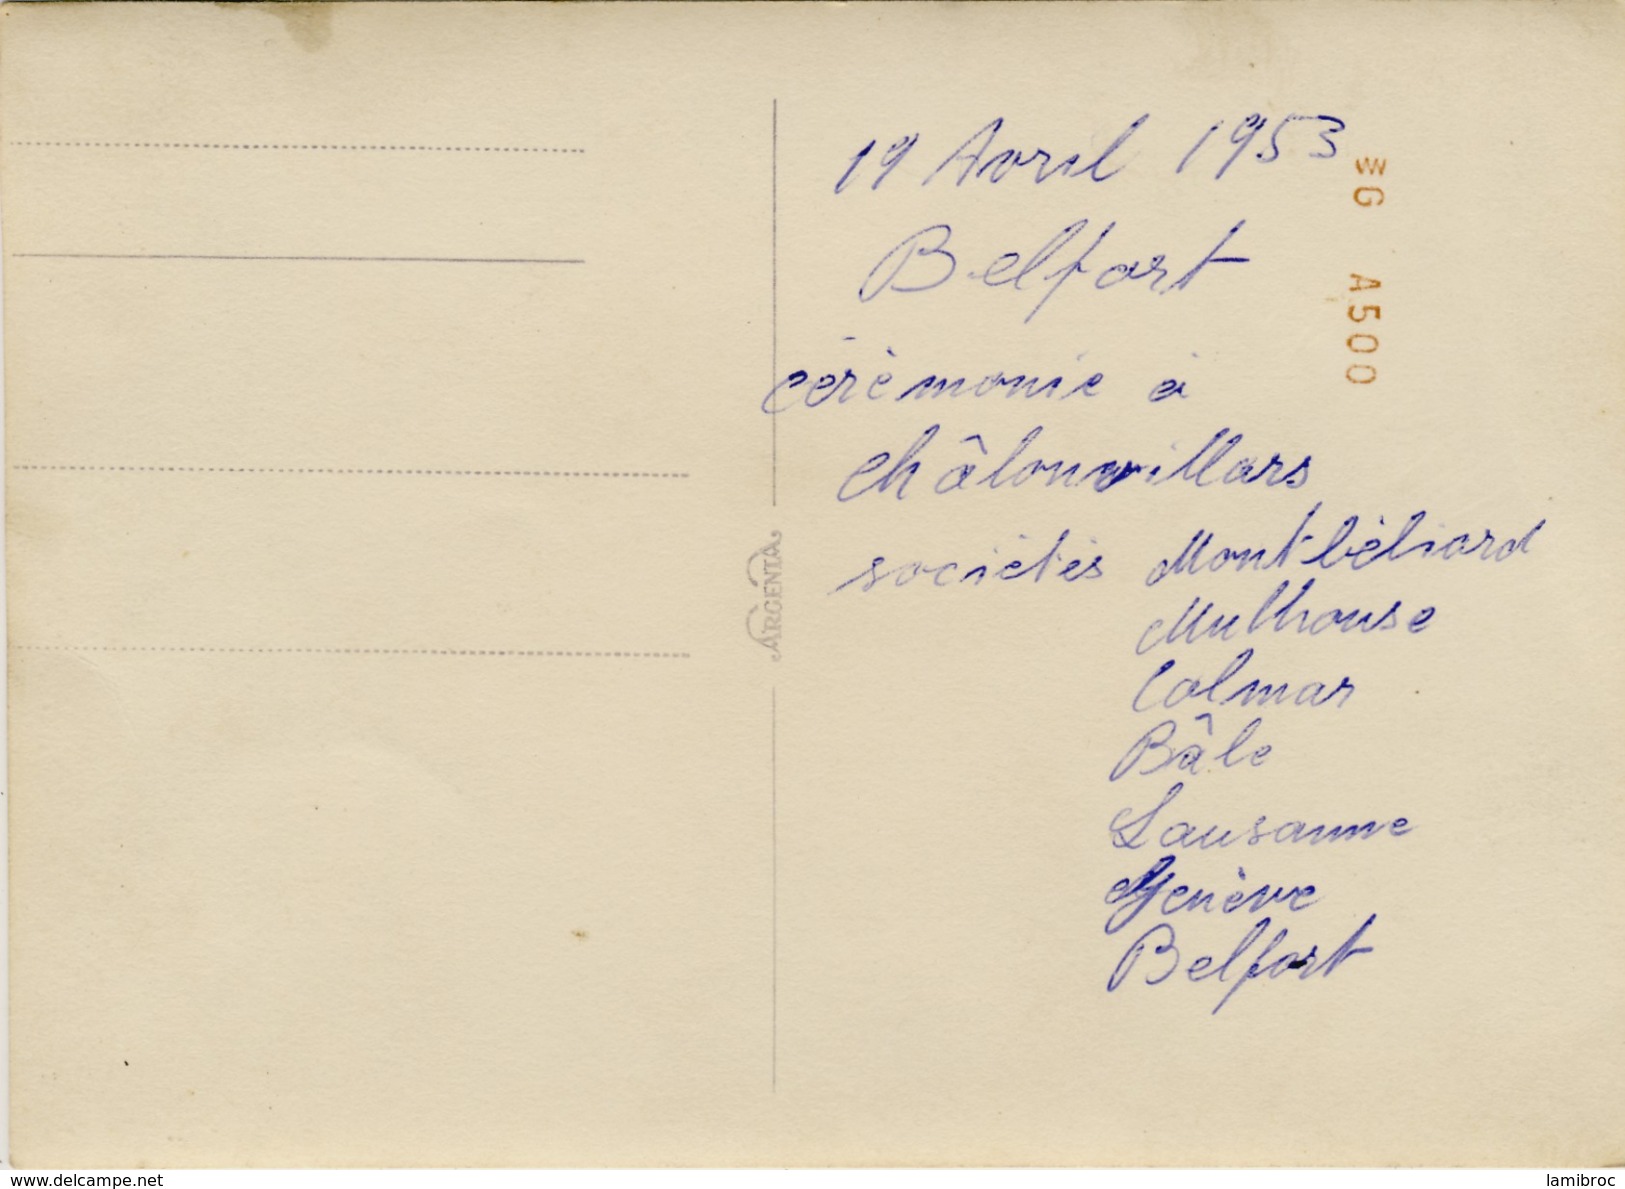 19 Avril 1953
Belfort
cérèmonie à
châlonvillars
sociétés Montbéliard
Mulhouse
Colmar
Bâle
Lausanne
Genève
Belfort
ARGENTA
G A500
www.delcampe.net
lamibroc